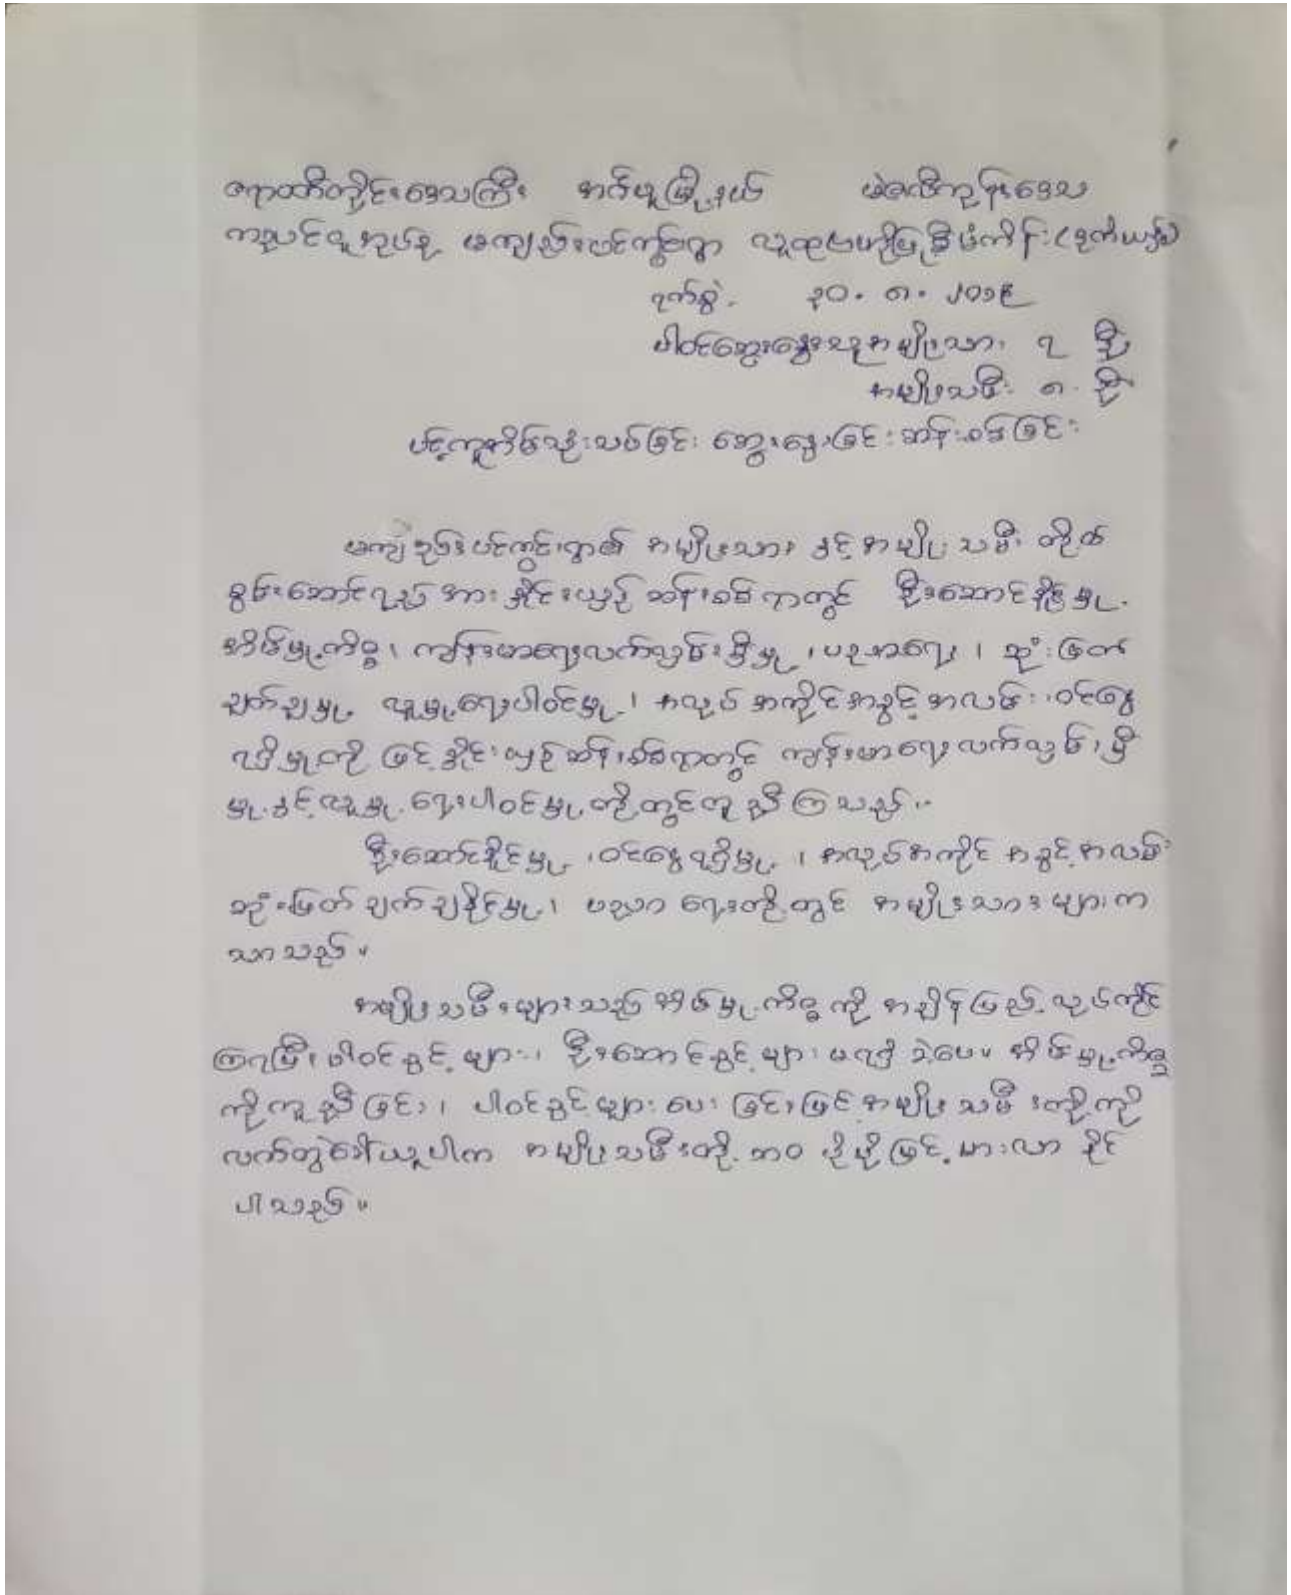 ဧရာဝတီတိုင်းဒေသကြီး ဘင်္ဂလား မြို့နယ် ကုန်းဒေသ
ကညင်ကူအုပ်စု မကျည်းပင်ကွင်းရွာ လူထုဗဟိုပြုစီမံကိန်း
ရက်စွဲ. ၃၀. ၈. ၂၀၁၉
ပါဝင်ဆွေးနွေးသူအမျိုးသား ၇ ဦး
အမျိုးသမီး ၈ ဦး
ပင့်ကူအိမ်သုံးသပ်ခြင်း ဆွေးနွေးခြင်း ဆန်းစစ်ခြင်း
မကျည်းပင်ကွင်းရွာ၏ အမျိုးသား နှင့် အမျိုးသမီး တို့၏
စွမ်းဆောင်ရည် အား နှိုင်းယှဉ် ဆန်းစစ်ရာတွင် ဦးဆောင်နိုင်မှု၊
အိမ်မှုကိစ္စ၊ ကျန်းမာရေးလက်လှမ်းမှီမှု၊ ပညာရေး၊ ဆုံးဖြတ်
ချက်ချမှု၊ လူမှုရေးပါဝင်မှု၊ အလုပ်အကိုင်အခွင့်အလမ်း၊ ဝင်ငွေ
ရရှိမှုတို့ ဖြင့် နှိုင်းယှဉ်ဆန်းစစ်ရာတွင် ကျန်းမာရေးလက်လှမ်းမှီ
မှုနှင့် လူမှုရေးပါဝင်မှုတို့တွင်တူညီကြသည်။
ဦးဆောင်နိုင်မှု၊ ဝင်ငွေရရှိမှု၊ အလုပ်အကိုင် အခွင့်အလမ်း
ဆုံးဖြတ်ချက်ချနိုင်မှု၊ ပညာရေးတို့တွင် အမျိုးသားများက
သာသည်။
အမျိုးသမီးများသည် အိမ်မှုကိစ္စကို အချိန်ပြည့်လုပ်ကိုင်
ကြရပြီး ပါဝင်ခွင့်များ၊ ဦးဆောင်ခွင့်များ မရရှိခဲ့ပေ။ အိမ်မှုကိစ္စ
ကိုကူညီခြင်း၊ ပါဝင်ခွင့်များပေးခြင်းဖြင့် အမျိုးသမီးတို့ကို
လက်တွဲခေါ်ယူပါက အမျိုးသမီးတို့ဘဝ ပိုမိုမြင့်မားလာနိုင်
ပါသည်။